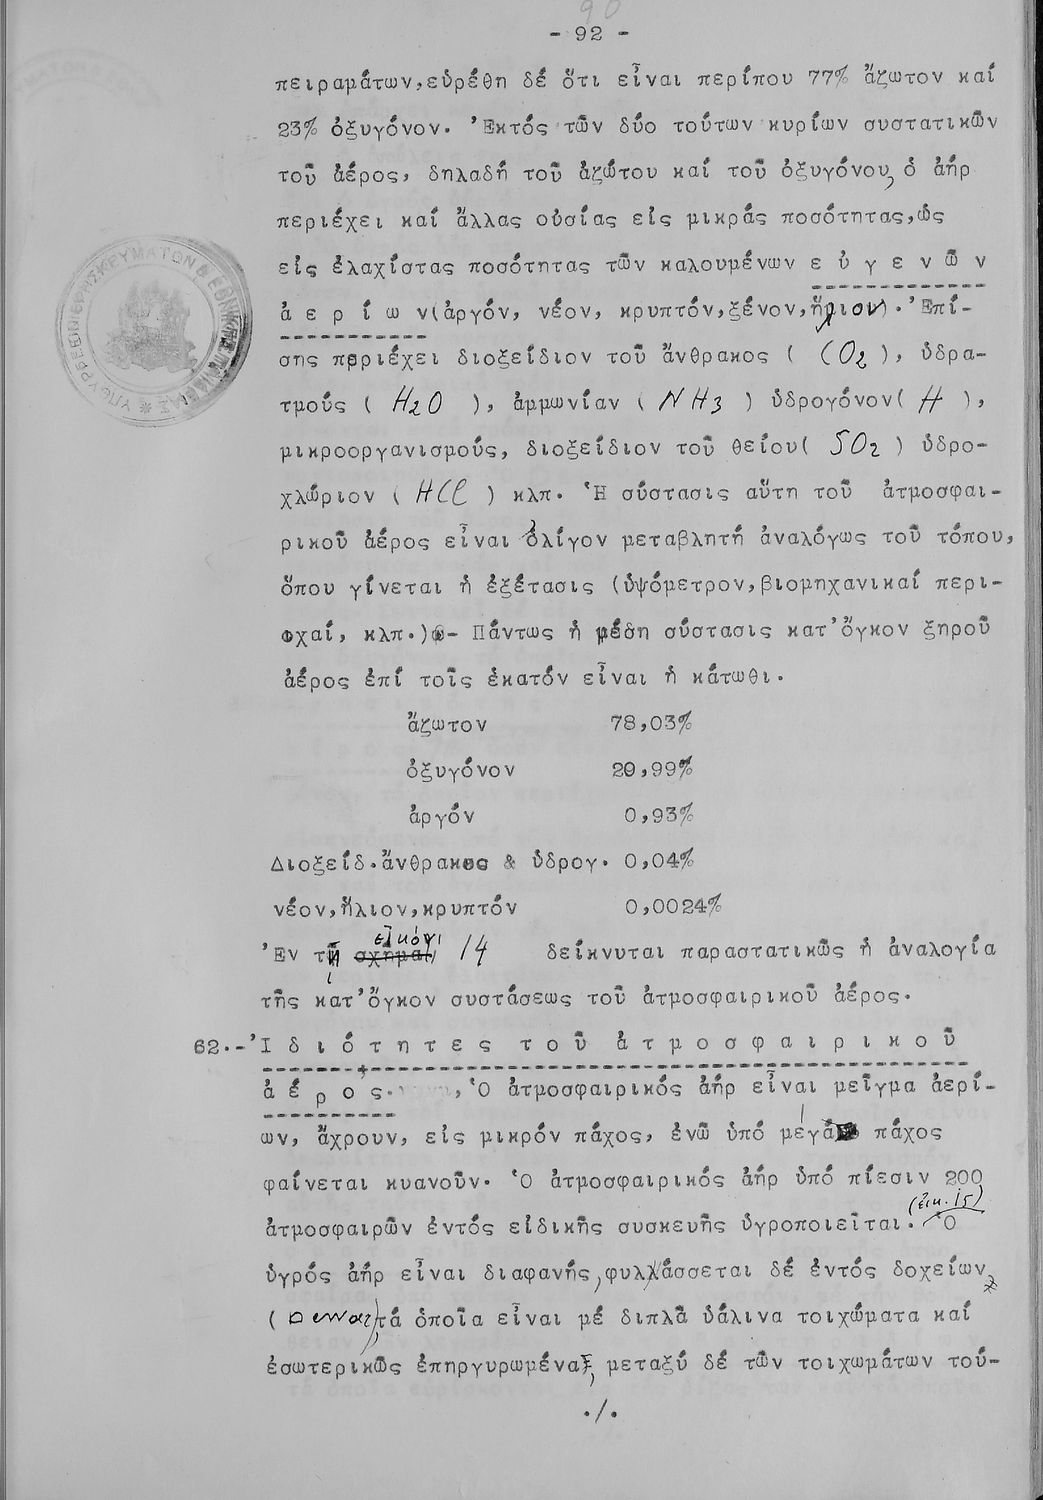 90
- 92 -
πειραμάτων,εὑρέθη δέ ὅτι εἶναι περίπου 77% ἄζωτον καί
23% ὀξυγόνον. Ἐκτός τῶν δύο τούτων κυρίων συστατικῶν
τοῦ ἀέρος, δηλαδή τοῦ ἀζώτου καί τοῦ ὀξυγόνου, ὁ ἀήρ
περιέχει καί ἄλλας οὐσίας εἰς μικράς ποσότητας,ὡς
εἰς ἐλαχίστας ποσότητας τῶν καλουμένων ε ὐ γ ε ν ῶ ν
ἀ ε ρ ί ω ν(ἀργόν, νέον, κρυπτόν,ξένον,ἥλιον). Ἐπί-
σης περιέχει διοξείδιον τοῦ ἄνθρακος ( CO2 ), ὑδρα-
τμούς ( H2O ), ἀμμωνίαν ( NH3 ) ὑδρογόνον( H ),
μικροοργανισμούς, διοξείδιον τοῦ θείου( SO2 ) ὑδρο-
χλώριον ( HCl ) κλπ. Ἡ σύστασις αὕτη τοῦ ἀτμοσφαι-
ρικοῦ ἀέρος εἶναι ὀλίγον μεταβλητή ἀναλόγως τοῦ τόπου,
ὅπου γίνεται ἡ ἐξέτασις (ὑψόμετρον,βιομηχανικαί περι-
οχαί, κλπ.).- Πάντως ἡ μέση σύστασις κατ'ὄγκον ξηροῦ
ἀέρος ἐπί τοῖς ἑκατόν εἶναι ἡ κάτωθι.
ἄζωτον 78,03%
ὀξυγόνον 20,99%
ἀργόν 0,93%
Διοξείδ.ἄνθρακος & ὑδρογ. 0,04%
νέον,ἥλιον,κρυπτόν 0,0024%
Ἐν τῇ σχήματι εἰκόνι 14 δείκνυται παραστατικῶς ἡ ἀναλογία
τῆς κατ'ὄγκον συστάσεως τοῦ ἀτμοσφαιρικοῦ ἀέρος.
62.-Ἰ δ ι ό τ η τ ε ς τ ο ῦ ἀ τ μ ο σ φ α ι ρ ι κ ο ῦ
ἀ έ ρ ο ς. Ὁ ἀτμοσφαιρικός ἀήρ εἶναι μεῖγμα ἀερί-
ων, ἄχρουν, εἰς μικρόν πάχος, ἐνῶ ὑπό μέγα πάχος
φαίνεται κυανοῦν. Ὁ ἀτμοσφαιρικός ἀήρ ὑπό πίεσιν 200
ἀτμοσφαιρῶν ἐντός εἰδικῆς συσκευῆς ὑγροποιεῖται. (εἰκ. 15) Ὁ
ὑγρός ἀήρ εἶναι διαφανής, φυλάσσεται δέ ἐντός δοχείων
( Dewar), τά ὁποῖα εἶναι μέ διπλᾶ ὑάλινα τοιχώματα καί
ἐσωτερικῶς ἐπηργυρωμένα, μεταξύ δέ τῶν τοιχωμάτων τού-
./.